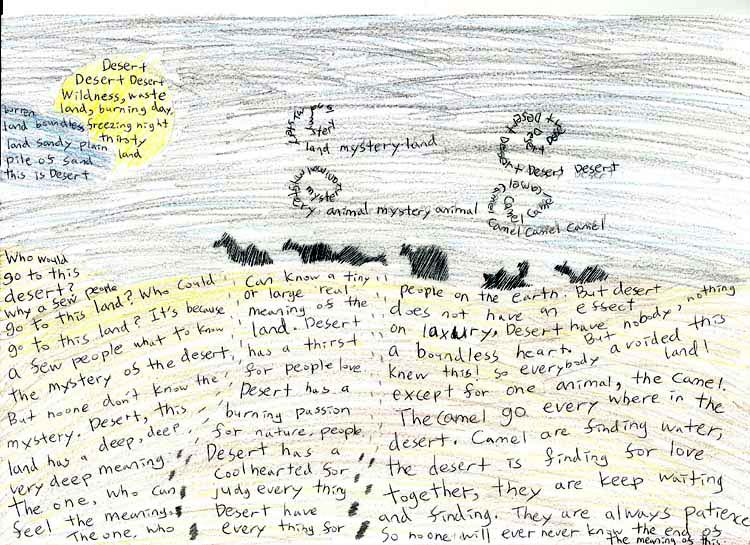 Desert
Desert Desert
Wildness, waste
land, burning day,
freezing night
thirsty
land
land boundless
land sandy plain
pile of sand
this is Desert
land mystery land
mystery
animal mystery animal
Desert Desert Desert
Camel Camel
Camel Camel Camel
Who would
go to this
desert?
Why a few people
go to this land? Who Could
go to this land? It's because
a few people what to know
the mystery of the desert
But noone don't know the
mystery. Desert, this
land has a deep, deep,
very deep meaning.
The one, who can
feel the meaning.
The one, who
Can know a tiny
or large real
meaning of the
land. Desert
has a thirst
for people love
Desert has a
burning passion
for nature, people
Desert has a
coolhearted for
judg every thing
Desert have
every thing for
people on the earth. But desert
does not have an effect
on laxury, Desert have nobody, nothing
a boundless heart. But avoided this
knew this! so everybody land!
except for one animal, the Camel.
The Camel go every where in the
desert. Camel are finding water,
the desert is finding for love
together, they are keep waiting
and finding. They are always patience
So noone will ever never know the end of
The meaning of this